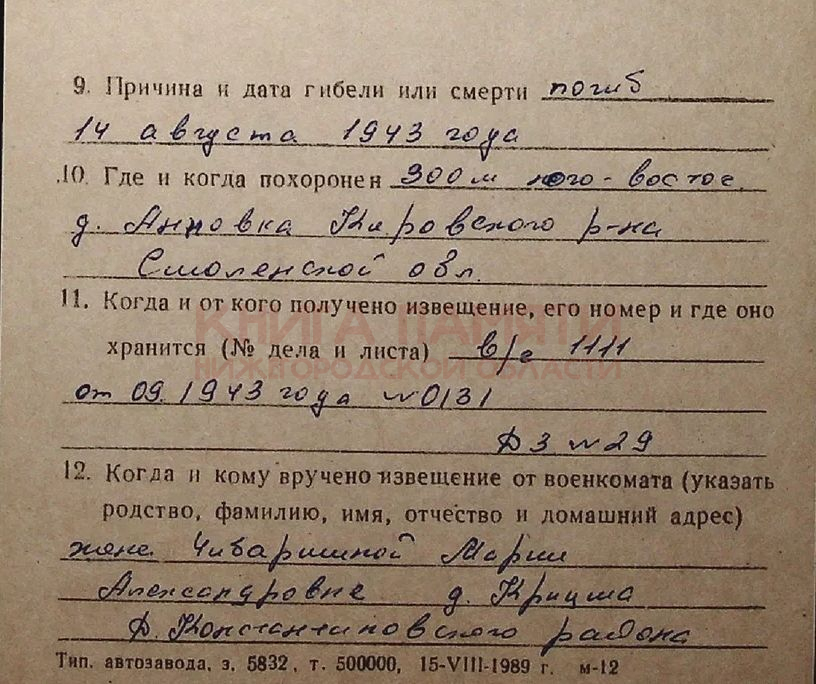 9. Причина и дата гибели или смерти погиб
14 августа 1943 года
10. Где и когда похоронен 300 м юго-восточ.
д. Анновка Кировского р-на
Смоленской обл.
11. Когда и от кого получено извещение, его номер и где оно
КНИГА ПАМЯТИ
хранится (№ дела и листа) в/г 1111
НИЖЕГОРОДСКОЙ ОБЛАСТИ
от 09.1943 года №0131
Д 3 №29
12. Когда и кому вручено извещение от военкомата (указать
родство, фамилию, имя, отчество и домашний адрес)
жене Чибаришной Марии
Александровне д. Крицша
Д. Константиновского района
Тип. автозавода, з. 5832, т. 500000, 15-VIII-1989 г. м-12